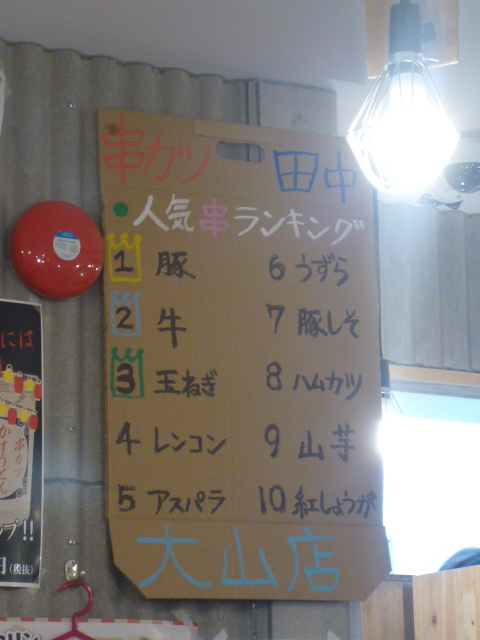 串カツ 田中
●人気串ランキング
1 豚
2 牛
3 玉ねぎ
4 レンコン
5 アスパラ
6 うずら
7 豚しそ
8 ハムカツ
9 山芋
10 紅しょうが
大山店
には
串カツ
かすうどん
プ!!
円(税抜)